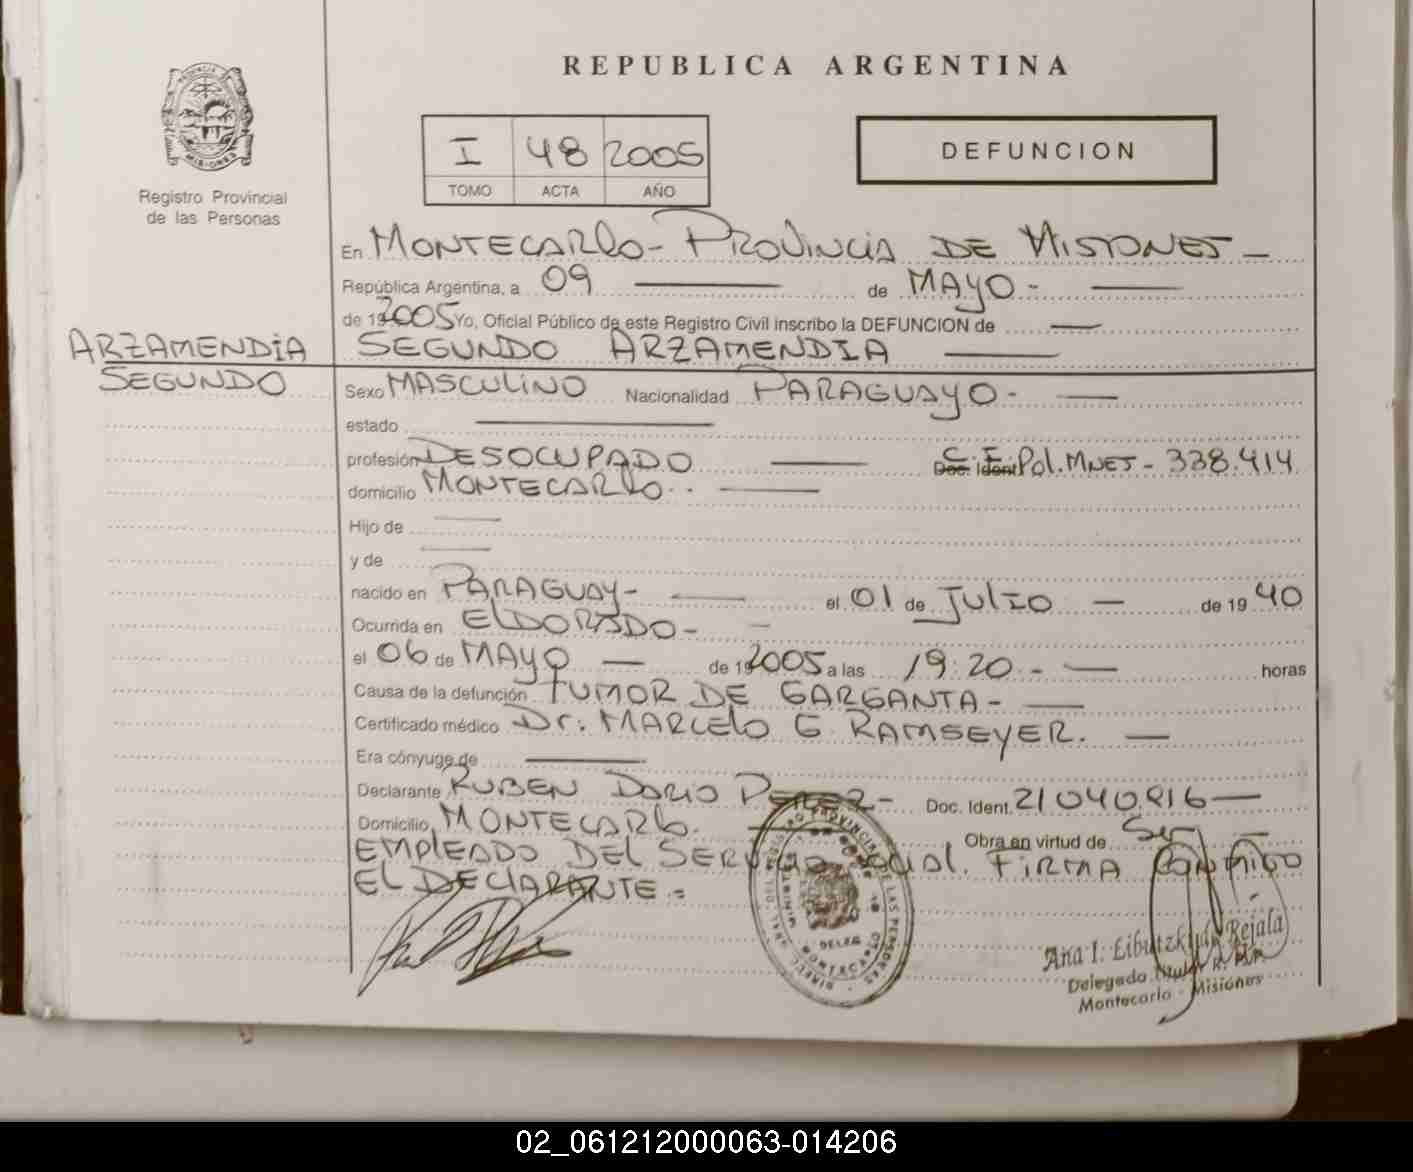 REPUBLICA ARGENTINA
PROVINCIA DE MISIONES
Registro Provincial
de las Personas
I 48 2005
TOMO ACTA AÑO
DEFUNCION
En MONTECARLO - PROVINCIA DE MISIONES -
República Argentina, a 09 de MAYO -
de 19 2005 Yo, Oficial Público de este Registro Civil inscribo la DEFUNCION de
ARZAMENDIA SEGUNDO ARZAMENDIA
SEGUNDO
Sexo MASCULINO Nacionalidad PARAGUAYO -
estado
profesión DESOCUPADO Doc. Ident. C.I. Pol. MNES - 338.414
domicilio MONTECARLO.
Hijo de
y de
nacido en PARAGUAY - el 01 de JULIO - de 19 40
Ocurrida en ELDORADO -
el 06 de MAYO - de 19 2005 a las 19:20 - horas
Causa de la defunción TUMOR DE GARGANTA -
Certificado médico Dr. MARCELO G. RAMSEYER. -
Era cónyuge de
Declarante RUBEN DARIO PEREZ - Doc. Ident. 21040.816 -
Domicilio MONTECARLO. Obra en virtud de Ser
EMPLEADO DEL SERVICIO SOCIAL. FIRMA CONMIGO
EL DECLARANTE =
Ana I. Rejala
Delegado Titular R. P. P.
Montecarlo - Misiones
02_061212000063-014206